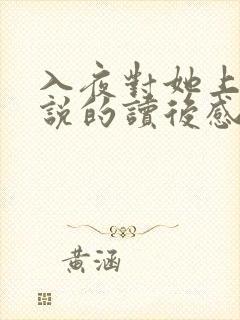 入夜對她上
說的讀後感
黃涵